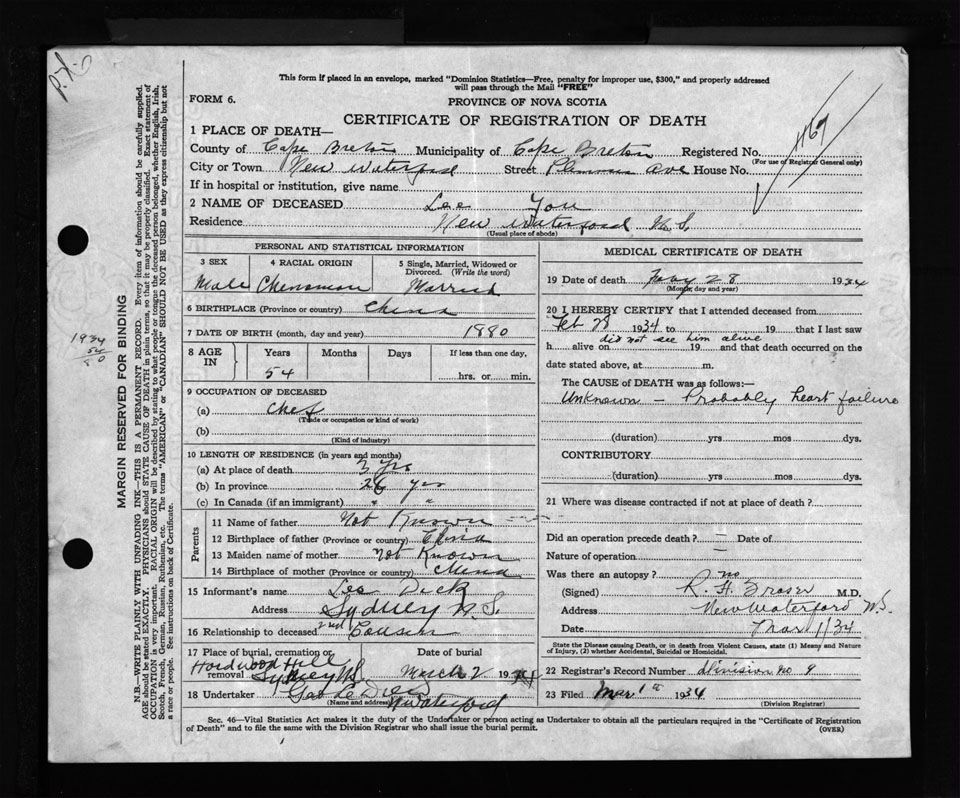 P.X.6
This form if placed in an envelope, marked "Dominion Statistics—Free, penalty for improper use, $300," and properly addressed
will pass through the Mail "FREE"
FORM 6.
PROVINCE OF NOVA SCOTIA
CERTIFICATE OF REGISTRATION OF DEATH
1 PLACE OF DEATH—
County of Cape Breton Municipality of Cape Breton Registered No. 1167
(For use of Registrar General only)
City or Town New Waterford Street Plummer Ave House No.
If in hospital or institution, give name
2 NAME OF DECEASED Lee You
Residence New Waterford N.S.
(Usual place of abode)
PERSONAL AND STATISTICAL INFORMATION
3 SEX 4 RACIAL ORIGIN 5 Single, Married, Widowed or Divorced. (Write the word)
Male Chinaman Married
6 BIRTHPLACE (Province or country) China
7 DATE OF BIRTH (month, day and year) 1880
8 AGE IN Years Months Days If less than one day,
54 hrs. or min.
9 OCCUPATION OF DECEASED
(a) Chef
(Trade or occupation or kind of work)
(b)
(Kind of industry)
10 LENGTH OF RESIDENCE (in years and months)
(a) At place of death 3 yrs
(b) In province 26 yrs
(c) In Canada (if an immigrant) " "
Parents
11 Name of father Not Known
12 Birthplace of father (Province or country) China
13 Maiden name of mother Not Known
14 Birthplace of mother (Province or country) China
15 Informant's name Lee Dick
Address Sydney N.S.
16 Relationship to deceased 2nd Cousin
17 Place of burial, cremation or removal Date of burial
Hardwood Hill Sydney N.S. March 2 1934
18 Undertaker Geo
(Name and address) N Waterford
MEDICAL CERTIFICATE OF DEATH
19 Date of death Feby 28 1934
(Month, day and year)
20 I HEREBY CERTIFY that I attended deceased from
Feb 28 1934 to 19 that I last saw
did not see him alive
h alive on 19 and that death occurred on the
date stated above, at m.
The CAUSE of DEATH was as follows:—
Unknown — Probably heart failure
(duration) yrs mos dys.
CONTRIBUTORY
(duration) yrs mos dys.
21 Where was disease contracted if not at place of death?
Did an operation precede death? — Date of
Nature of operation
Was there an autopsy? no
(Signed) R. H. Fraser M.D.
Address New Waterford N.S.
Date Mar 1/34
State the Disease causing Death, or in death from Violent Causes, state (1) Means and Nature
of Injury, (2) whether Accidental, Suicidal or Homicidal.
22 Registrar's Record Number division no 9
23 Filed Mar 1st 1934
(Division Registrar)
Sec. 46—Vital Statistics Act makes it the duty of the Undertaker or person acting as Undertaker to obtain all the particulars required in the "Certificate of Registration
of Death" and to file the same with the Division Registrar who shall issue the burial permit. (OVER)
MARGIN RESERVED FOR BINDING
N.B.—WRITE PLAINLY WITH UNFADING INK—THIS IS A PERMANENT RECORD. Every item of information should be carefully supplied.
AGE should be stated EXACTLY. PHYSICIANS should STATE CAUSE OF DEATH in plain terms, so that it may be properly classified. Exact statement of
OCCUPATION is very important. RACIAL ORIGIN will be described by stating to what people or tongue the deceased person belonged, whether English, Irish,
Scotch, French, German, Russian, Ruthenian, etc. The terms "AMERICAN" or "CANADIAN" SHOULD NOT BE USED as they express citizenship but not
a race or people. See instructions on back of Certificate.
1934
54
80